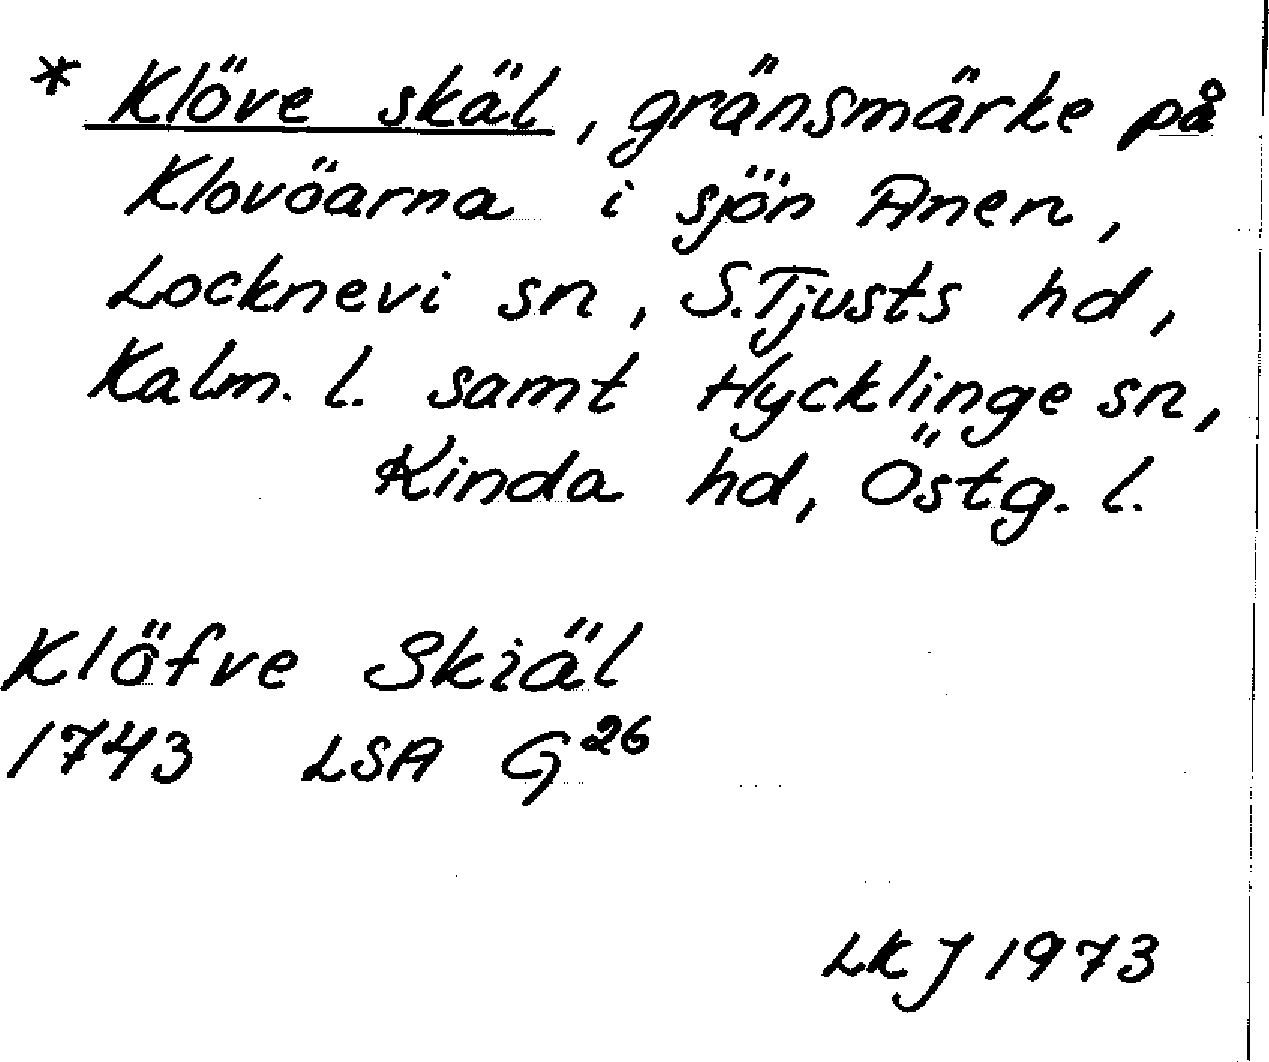 * Klöve skäl, gränsmärke på
Klovöarna i sjön Anen,
Locknevi sn, S. Tjusts hd,
Kalm. l. samt Hycklinge sn,
Kinda hd, Östg. l.
Klöfve Skiäl
1743 LSA G26
LKJ 1973